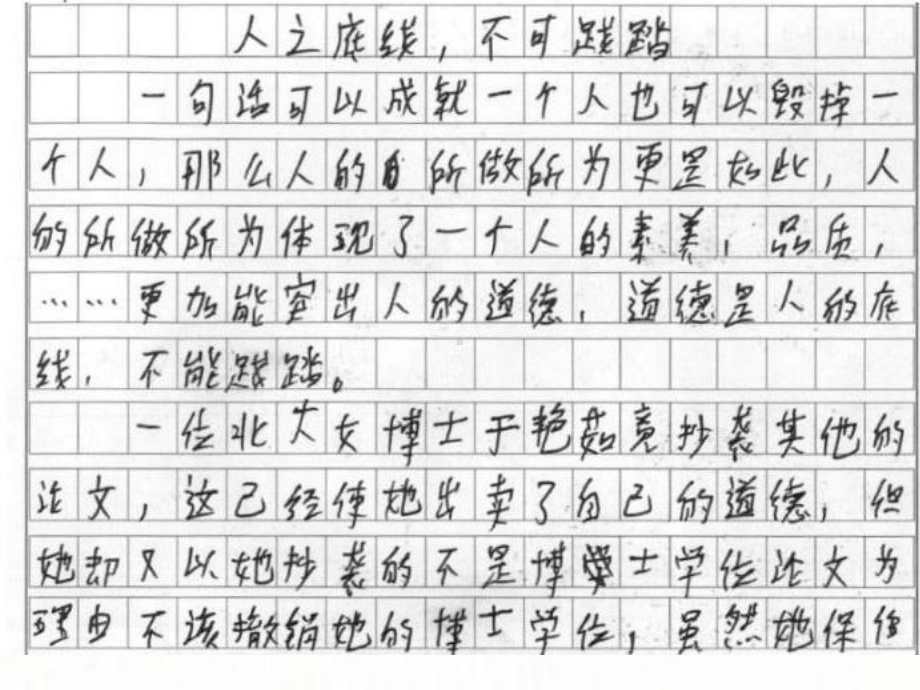 人之底线，不可践踏
一句话可以成就一个人也可以毁掉一
个人，那么人的所做所为更是如此，人
的所做所为体现了一个人的素养，品质，
……更加能突出人的道德，道德是人的底
线，不能践踏。
一位北大女博士于艳茹竟抄袭其他的
论文，这已经使她出卖了自己的道德，但
她却又以她抄袭的不是博士学位论文为
理由不该撤销她的博士学位，虽然她保住